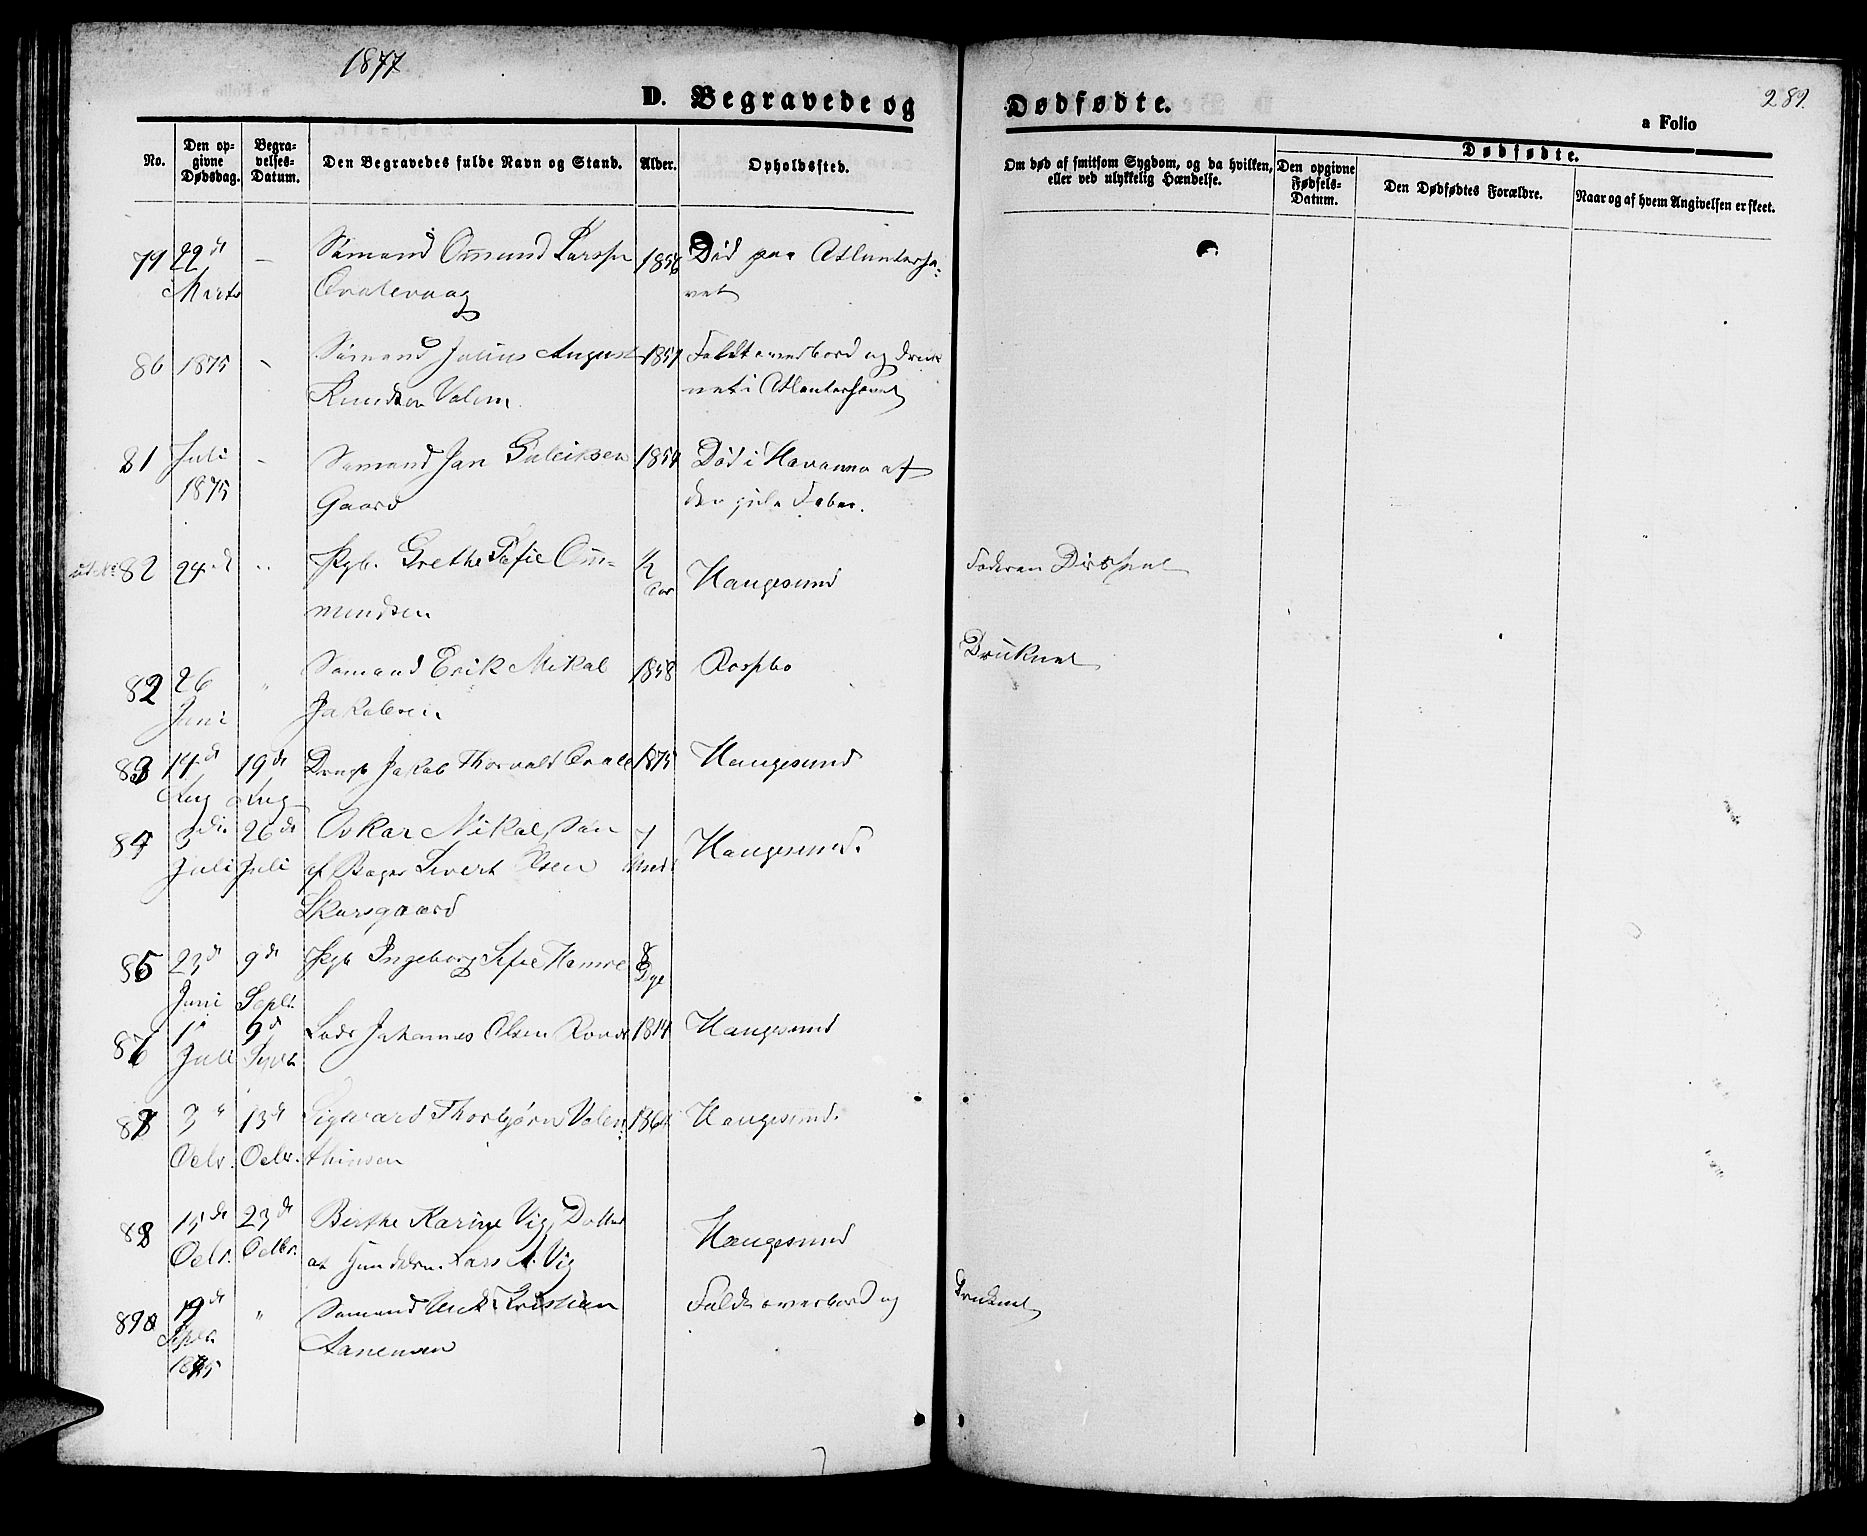 1877
D. Begravede og Dødfødte.
289.
a Folio
No.
Den op-
givne
Dødsdag.
Begra-
velses-
Datum.
Den Begravedes fulde Navn og Stand.
Alder.
Opholdssted.
Om død af smitsom Sygdom, og da hvilken,
eller ved ulykkelig Hændelse.
Dødfødte.
Den opgivne
Fødsels-
Datum.
Den Dødfødtes Forældre.
Naar og af hvem Angivelsen er skeet.
79 22de — Sømand Ommund Larsen 1856 Død paa Atlanterha-
Marts Qvalevaag vet
80 1875 - Sømand Julius August 1857 Faldt overbord og druk-
Knudsen Valem net i Atlanterhavet
81 Juli - Sømand Jan 1854 Død i Havanna af
1875 Gaard den gule Feber.
82 24de " Pgb. Grethe Sofie Om- ½ Haugesund
mundsen Aar
82 26 " Sømand Erik Mikal 1858 Druknet
Juni Jakobsen
83 14de 19de Drengb Jakob Thorvald 1875 Haugesund
Aug Aug
84 3die 26de Oskar Mikal, Søn 7 Haugesund.
Juli Juli af Bager Sivert Olsen
Skarsgaard
85 23de 9de Pgb Ingeborg Sofie Hamre 8
Juni Septb. Dge
86 1ste 9de Lods Johannes Olsen 1814 Haugesund
Juli Septb
87 3die 13de Sigvard Thorbjørn Valen- Haugesund.
Octbr. Octbr. thinsen
88 15de 23de Birthe Karine Vig, Datter Haugesund
Octbr. Octbr. af Lars A. Vig
89 19de " Sømand Kristian Faldt overbord og druknet
Septbr Aanensen
1875